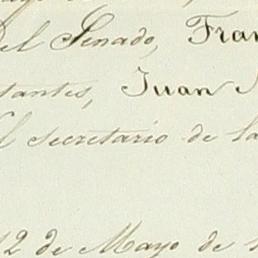 del Senado, Fran
tantes, Juan
l secretario de la
12 de Mayo de 1